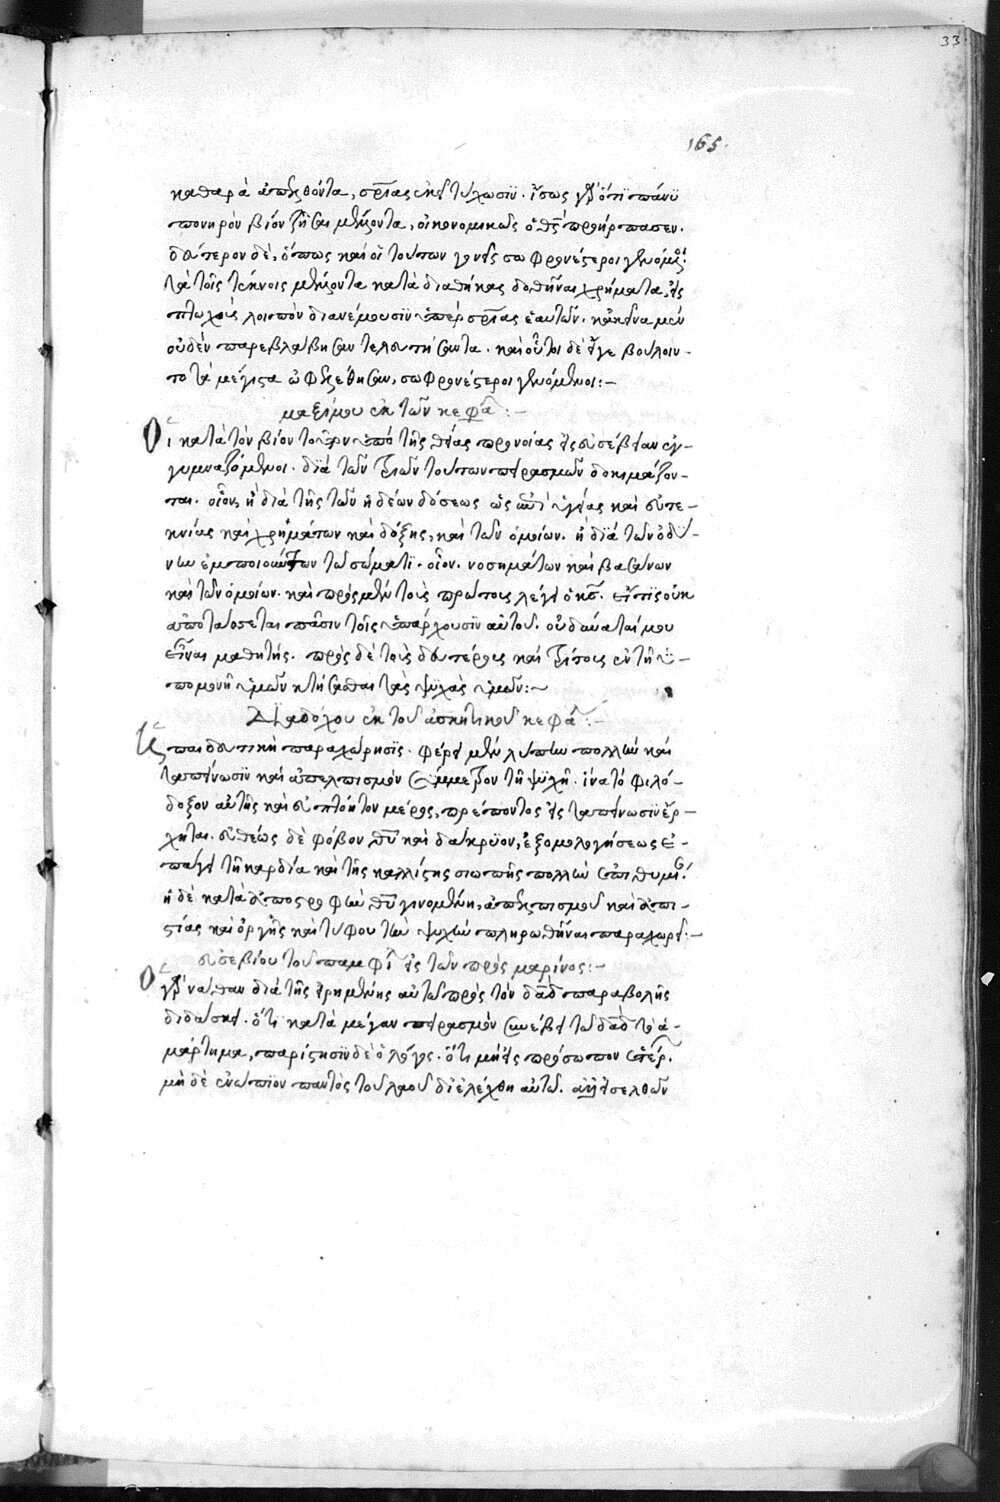 33
165
καθαρὰ ἀπελθόντα, σωτηρίας ἐκεῖ τύχωσιν. ἴσως γὰρ ὅτι πάνυ
πονηρὸν βίον ζῆσαι μέλλοντα, οἰκονομικῶς ὁ θς προήρπασεν.
δεύτερον δὲ, ὅπως καὶ οἱ τούτων γονεῖς σωφρονέστεροι γενόμενοι.
τὰ τοῖς τέκνοις μέλλοντα κατὰ διαθήκας δοθῆναι χρήματα, εἰς
πτωχοὺς λοιπὸν διανέμουσιν ὑπὲρ σωτηρίας ἑαυτῶν. κἀκεῖνα μὲν
οὐδὲν παρεβλάβησαν τελευτήσαντα. καὶ οὗτοι δὲ εἴγε βούλοιν-
το τὰ μέγιστα ὠφελήθησαν, σωφρονέστεροι γενόμενοι:-
μαξίμου ἐκ τῶν κεφα:-
Οἱ κατὰ τὸν βίον τοῦτον ὑπὸ τῆς θείας προνοίας εἰς εὐσέβειαν ἐγ-
γυμναζόμενοι. διὰ τῶν τριῶν τούτων πειρασμῶν δοκιμάζον-
ται. οἷον, ἢ διὰ τῆς τῶν ἡδέων δόσεως ὡς ἐπὶ ὑγείας καὶ εὐτε-
κνίας καὶ χρημάτων καὶ δόξης, καὶ τῶν ὁμοίων. ἢ διὰ τῶν ὀδύ-
νην ἐμποιούντων τῶ σώματι. οἷον. νοσημάτων καὶ βασάνων
καὶ τῶν ὁμοίων. καὶ πρὸς μὲν τοὺς πρώτους λέγει ὁ κς. εἴ τις οὐκ
ἀποτάσσεται πᾶσιν τοῖς ὑπάρχουσιν αὐτοῦ. οὐ δύναταί μου
εἶναι μαθητής. πρὸς δὲ τοὺς δευτέρους καὶ τρίτους ἐν τῆ ὑ-
πομονῆ ὑμῶν κτήσασθαι τὰς ψυχὰς ὑμῶν:~
Διαδόχου ἐκ τοῦ ἀσκητικοῦ κεφα:-
παιδευτικὴ παραχώρησις. φέρει μὲν λύπην πολλὴν καὶ
ταπείνωσιν καὶ ἀπελπισμὸν σύμμετρον τῆ ψυχῆ. ἵνα τὸ φιλό-
δοξον αὐτῆς καὶ εὐπτόητον μέρος, πρεπόντως εἰς ταπείνωσιν ἔρ-
χηται. εὐθέως δὲ φόβον θυ καὶ δάκρυον, ἐξομολογήσεως ἐ-
πάγει τῆ καρδία καὶ τῆς καλλίστης σιωπῆς πολλὴν ἐπιθυμίαν.
ἡ δὲ κατὰ ἀποστροφὴν θυ γινομένη, ἀπελπισμοῦ καὶ ἀπι-
στίας καὶ ὀργῆς καὶ τύφου τὴν ψυχὴν πληρωθῆναι παραχωρεῖ:-
εὐσεβίου τοῦ παμφι εἰς τῶν πρὸς μαρίνος:-
διὰ τῆς εἰρημένης αὐτῶ πρὸς τὸν δαδ παραβολῆς
διδάσκει. ὅτι κατὰ μέγαν πειρασμὸν συνέβη τῶ δαδ τὸ ἁ-
μάρτημα, παρίστησιν δὲ ὁ λόγος. ὅτι μὴ εἰς πρόσωπον
μὴ δὲ ἐνώπιον παντὸς τοῦ λαοῦ διελέγχθη αὐτῶ. ἀλλ' εἰσελθὼν